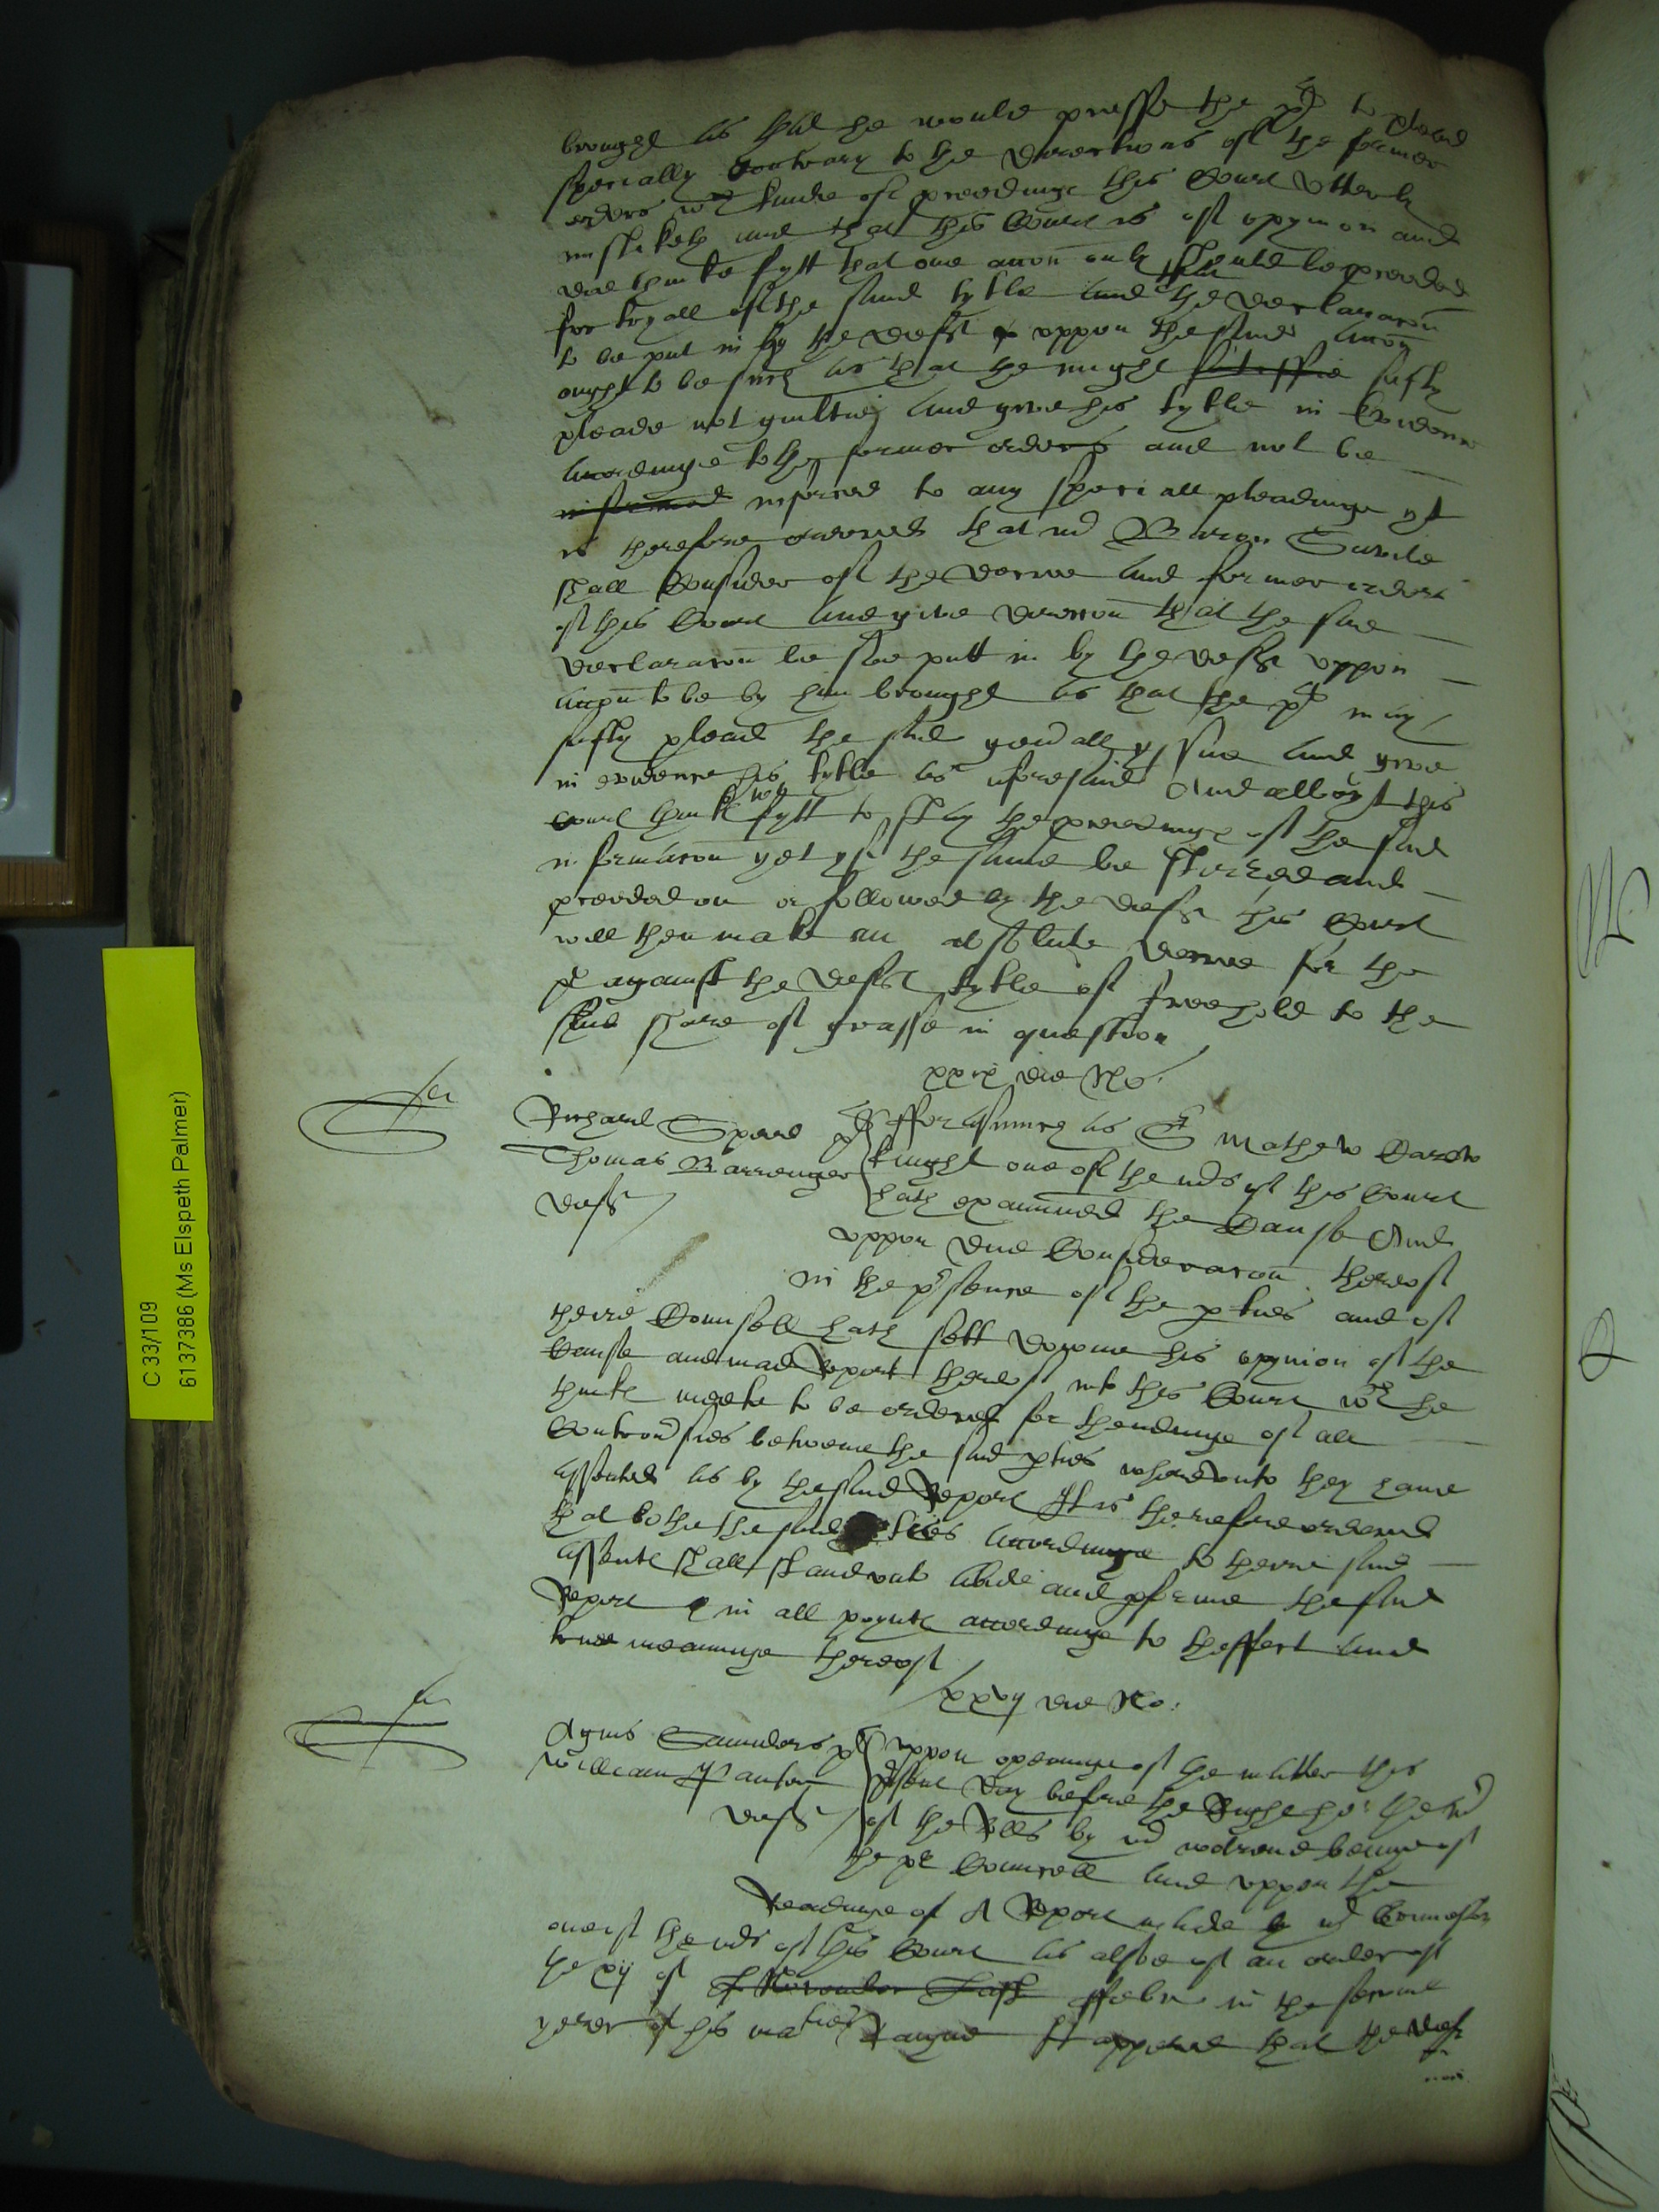 brought as that he would presse the pl to plead
specially Contrary to the direccions of the former
orders wch kinde of proceedinge this Court vtterly
misliketh and that this Court is of opynion and
doe thinke fytt that one accon only should be proceeded
for tryall of the said tytle and the declaracon
to be put in by the deft vppon the said accon
ought to be such as that he might safly
pleade not guiltie and give his tytle in Evidence
accordinge to the former orders and not be
informed inforced to any speciall pleadinge yt
is therefore ordered that mr Baron Savile
shall Consider of the decree and former orders
of this Court and give direccon that the said
declaracon be soe putt in by the deft vppon
accon to be by him brought as that the pl may
safly plead the said gen'all yssue and give
in evidence his tytle as aforesaid And albeyt this
Court thinke fytt to stay the proceedinge of the said
informacon yet yf the same be stirred and
proceeded on or followed by the deft this Court
will then make an absolute decree for the
pl against the defts tytle of freehold to the
said share of grasse in question
xxix die No:
Richard Spere pl
Thomas Barrenger
deft
fforasmuch as Sr Mathew Carew
knight one of the mrs of this Court
hath examined the Cause And
vppon due Consideracon thereof
in the p'sence of the p'ties and of
theire Counsell hath sett downe his opynion of the
Cause and made Report thereof into this Court wch he
thinke meete to be ordered for thendinge of all
Controu'sies betweene the said p'ties whereunto they haue
assented as by the said Report It is therefore ordered
that bothe the said ties accordinge to theire said
assente shall stand vnto abide and p'forme the said
Report in all poynte accordinge to theffect and
true meaninge thereof
xxvij die No:
Agnis Saunders pl
William Panton
deft
vppon openinge of the matter this
p'sent day before the Right ho: the mr
of the Rolls by mr beinge of
the pl Counsell and vppon the
Readinge of A Report made by mr
one of the mrs of this Court as alsoe of an order of
the xij of November Last ffebr in the second
yeere of his maties Raigne It appered that the deft